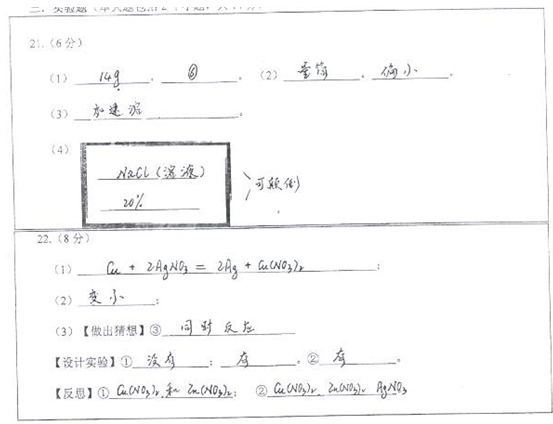 21.(6分)
(1) 14g . ⑥ . (2) 量筒 . 偏小 .
(3) 加速溶 .
(4)
NaCl(溶液)
20%
可颠倒
22.(8分)
(1) Cu + 2AgNO₃ = 2Ag + Cu(NO₃)₂ ;
(2) 变小 ;
(3)【做出猜想】③ 同时反应
【设计实验】① 没有 ; 有 。② 有 。
【反思】① Cu(NO₃)₂ 和 Zn(NO₃)₂; ② Cu(NO₃)₂ Zn(NO₃)₂ AgNO₃